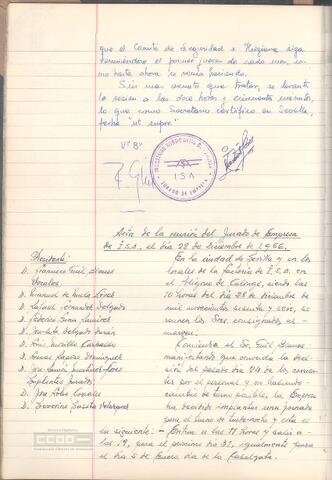 que el Comité de Seguridad e Higiene siga
reuniéndose el primer jueves de cada mes, co-
mo hasta ahora se venía haciendo.
Sin más asuntos que tratar, se levanta
la sesión a las doce horas y cincuenta minutos,
lo que como Secretario certifico en Sevilla,
fecha "ut supra"
Vº Bº
ISA
JURADO DE EMPRESA
Acta de la reunión del Jurado de Empresa
de I.S.A. el día 28 de Diciembre de 1966.
Presidente:
D. Francisco
Vocales:
D. Manuel de
D. Rafael Fernández Delgado
D. Federico Ramírez
D. Delgado Durán
D. Luis Morillo
D. Domínguez
D. José Ramón
Suplentes Jurados:
D. José
D. Severino Velázquez
En la ciudad de Sevilla y en los
locales de la factoría de I.S.A. en el
Polígono de Calonge, siendo las
10 horas del día 28 de Diciembre de
mil novecientos sesenta y seis, se
reunen los Sres. consignados al
margen:
Comienza el Sr.
manifestando que conocida la deci-
sión del pasado día 24 de los corrien-
tes por el personal y no habiendo
cambio de turno posible, la Empresa
ha decidido implantar una jornada
para el turno de tarde-noche y esta es
la siguiente: - Entrar a las 11 horas y salir a
las 19, para el próximo día 31, igualmente para
el día 5 de Enero día de la Cabalgata.